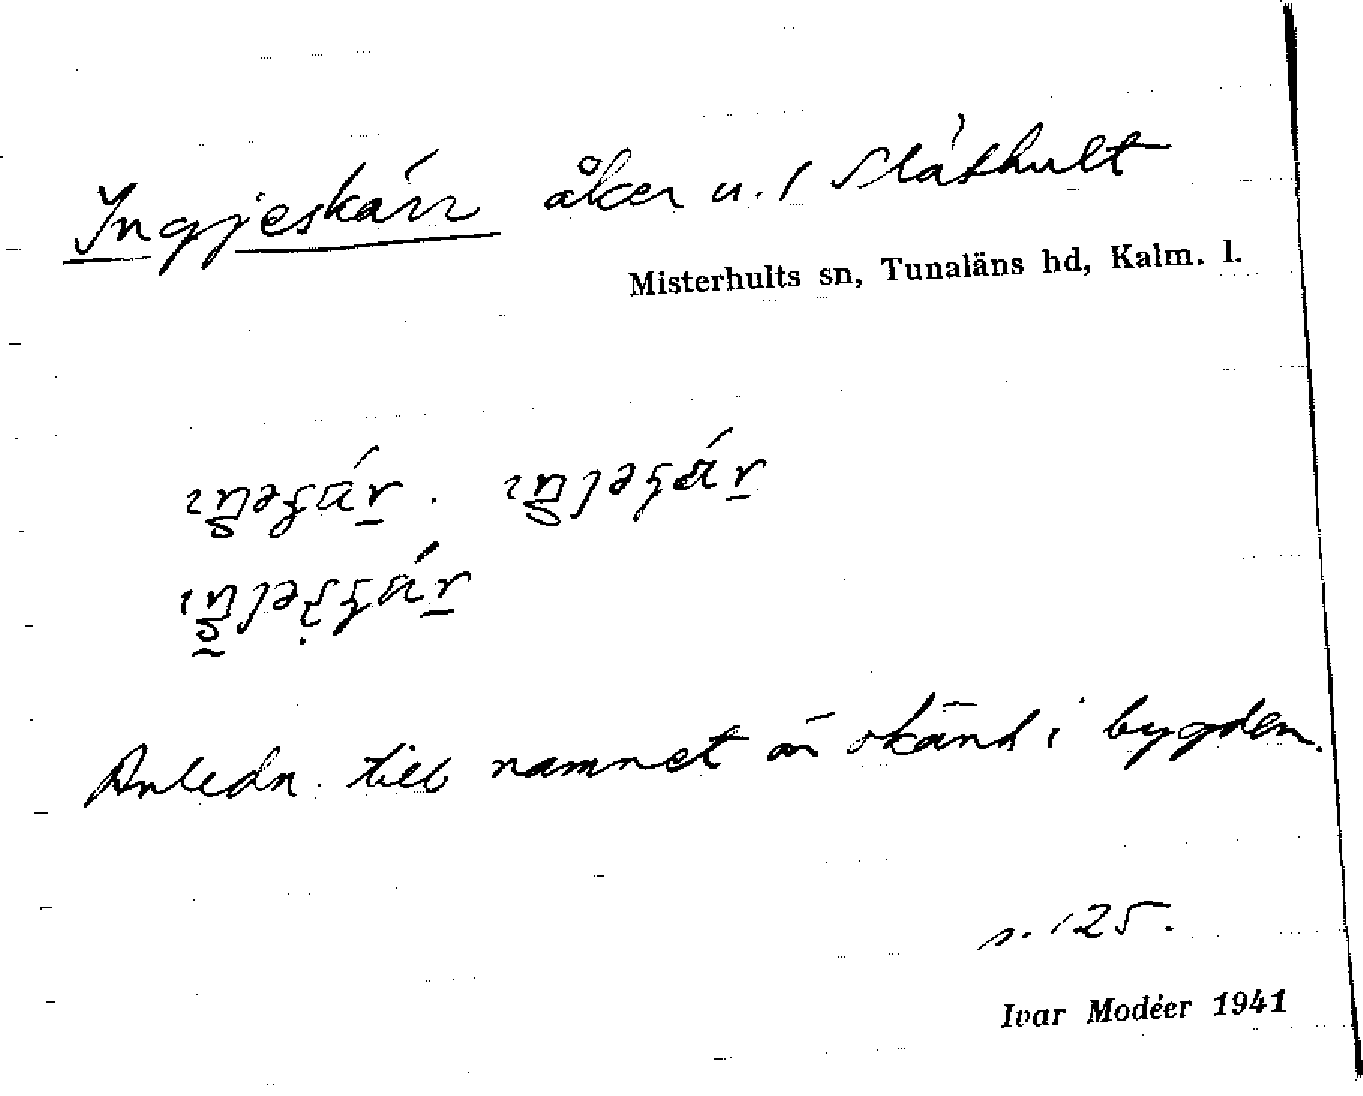 Ingjeskärr åker u. 1 Släthult
Misterhults sn, Tunaläns hd, Kalm. l.
Anledn. till namnet är okänd i bygden.
s. 125.
Ivar Modéer 1941